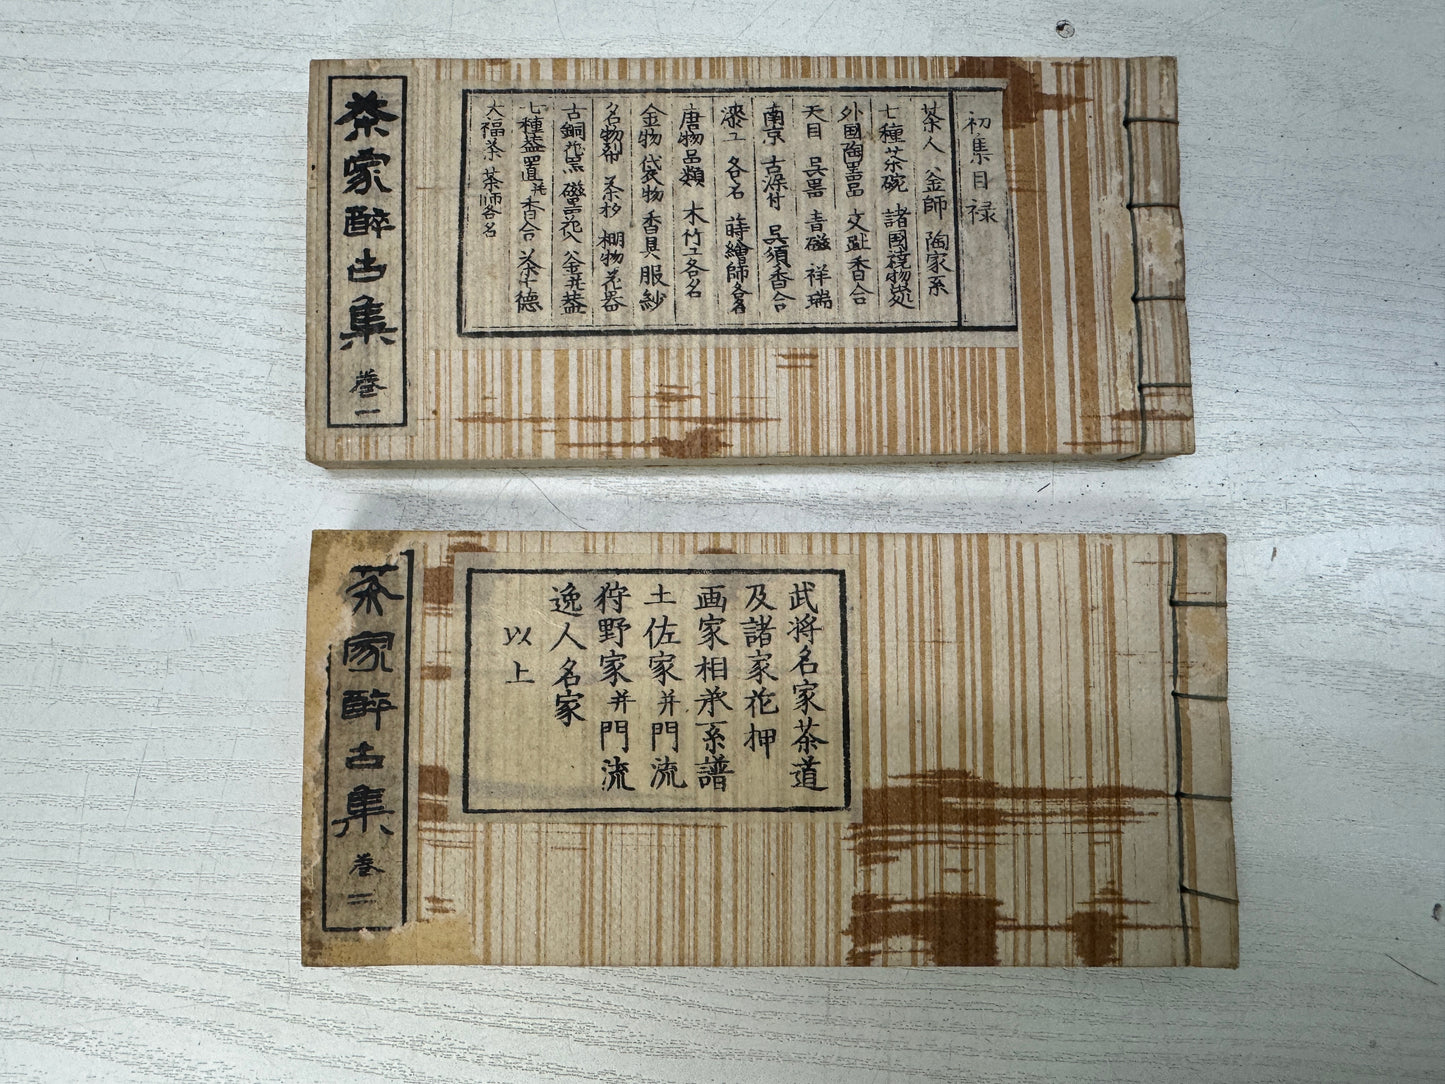 茶家酔古集 巻一
初集目禄
茶人 釜師 陶家系
七種茶碗 諸国焼物
外国陶器品 交趾香合
天目 呉器 青磁 祥瑞
南京 古染付 呉須香合
漆工 各名 蒔繪師各名
唐物品類 木竹工各名
金物 袋物 香具 服紗
名物裂 茶杓 棚物 花器
古銅花器 磁 花入 釜并蓋
七種蓋置并香合 茶 徳
大福茶 茶師各名
茶家酔古集 巻二
武将名家茶道
及諸家花押
画家相承系譜
土佐家并門流
狩野家并門流
逸人名家
以上